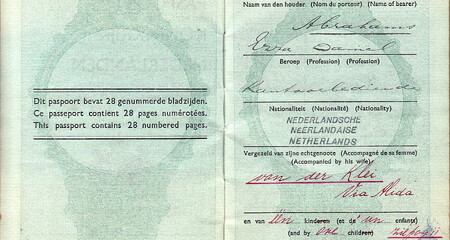 Dit paspoort bevat 28 genummerde bladzijden.
Ce passeport contient 28 pages numérotées.
This passport contains 28 numbered pages.
Naam van den houder. (Nom du porteur) (Name of bearer)
Abrahams
Ezra Samuel
Beroep (Profession) (Profession)
Kantoorbediende
Nationaliteit (Nationalité) (Nationality)
NEDERLANDSCHE
NEERLANDAISE
NETHERLANDS
Vergezeld van zijne echtgenoote (Accompagné de sa femme)
(Accompanied by his wife)
van der Klei
Alida
en van één kinderen (et de un enfants)
(and by one children)